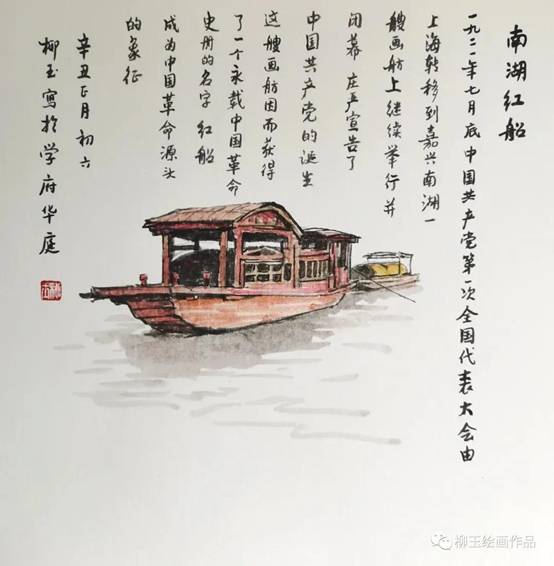 南湖红船
一九二一年七月底中国共产党第一次全国代表大会由
上海转移到嘉兴南湖一
艘画舫上继续举行并
闭幕 庄严宣告了
中国共产党的诞生
这艘画舫因而获得
了一个永载中国革命
史册的名字 红船
成为中国革命源头
的象征
辛丑正月初六
柳玉寫於学府华庭
柳玉绘画作品